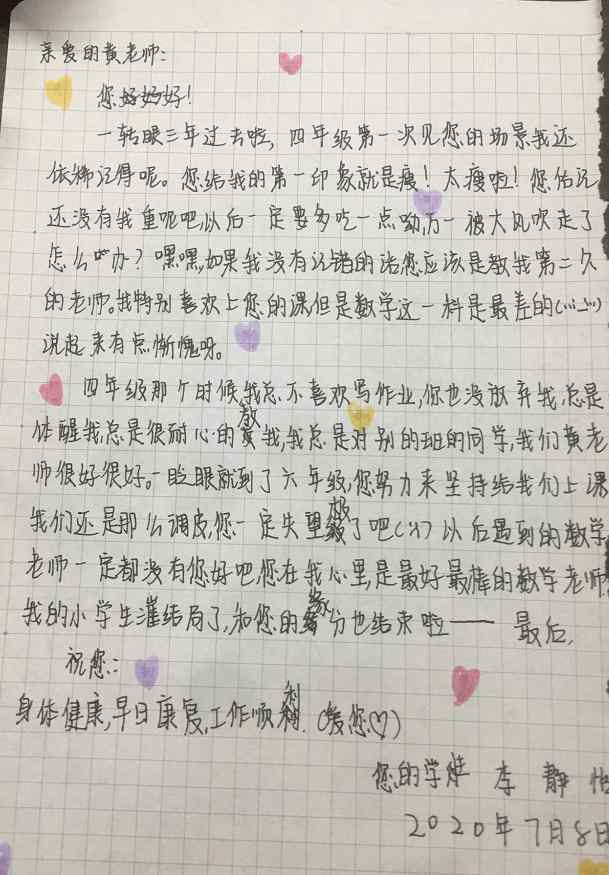 亲爱的黄老师:
您好好好!
一转眼三年过去啦,四年级第一次见您的场景我还
依稀记得呢。您给我的第一印象就是瘦!太瘦啦!您估记
还没有我重呢吧,以后一定要多吃一点呦,万一被大风吹走了
怎么办?嘿嘿,如果我没有记错的话,您应该是教我第二久
的老师。我特别喜欢上您的课,但是数学这一科是最差的(…_…)
说起来有点惭愧呀。
四年级那个时候,我总不喜欢写作业,你也没放弃我,总是
体醒我,总是很耐心的教我,我总是对别的班的同学,我们黄老
师很好很好。一眨眼就到了六年级,您努力来坚持给我们上课
我们还是那么调皮,您一定失望极了吧(")以后遇到的数学
老师一定都没有你好吧,您在我心里是最好最棒的数学老师
我的小学生涯结局了,和您的缘分也结束啦——最后,
祝您:
身体健康,早日康复,工作顺利.(爱您♡)
您的学生 李静怡
2020年7月8日